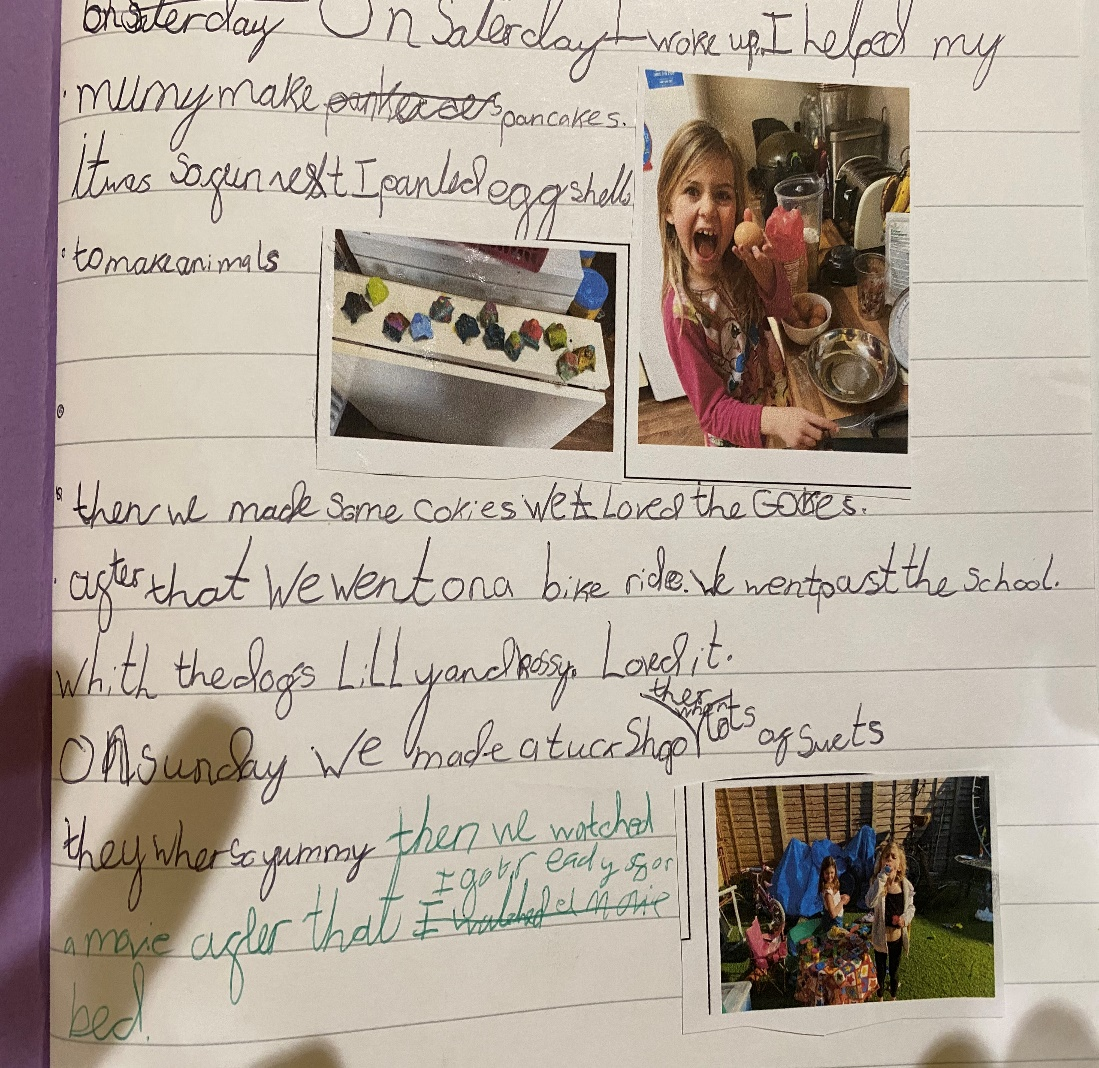 onSaterday On Saterday I woke up, I helped my
mumy make pancakes.
It was so fun next I panted egg shells
to make animals
then we made some cokies we Loved the Cokies.
after that We went on a bike ride. We went past the school.
whith the dogs Lilly and Rossy. Loved it.
ther
when
On sunday we made a tuck Shop lots of sweets
they wher so yummy then we watched
I got r eady for
a movie after that I watched a Movie
bed.